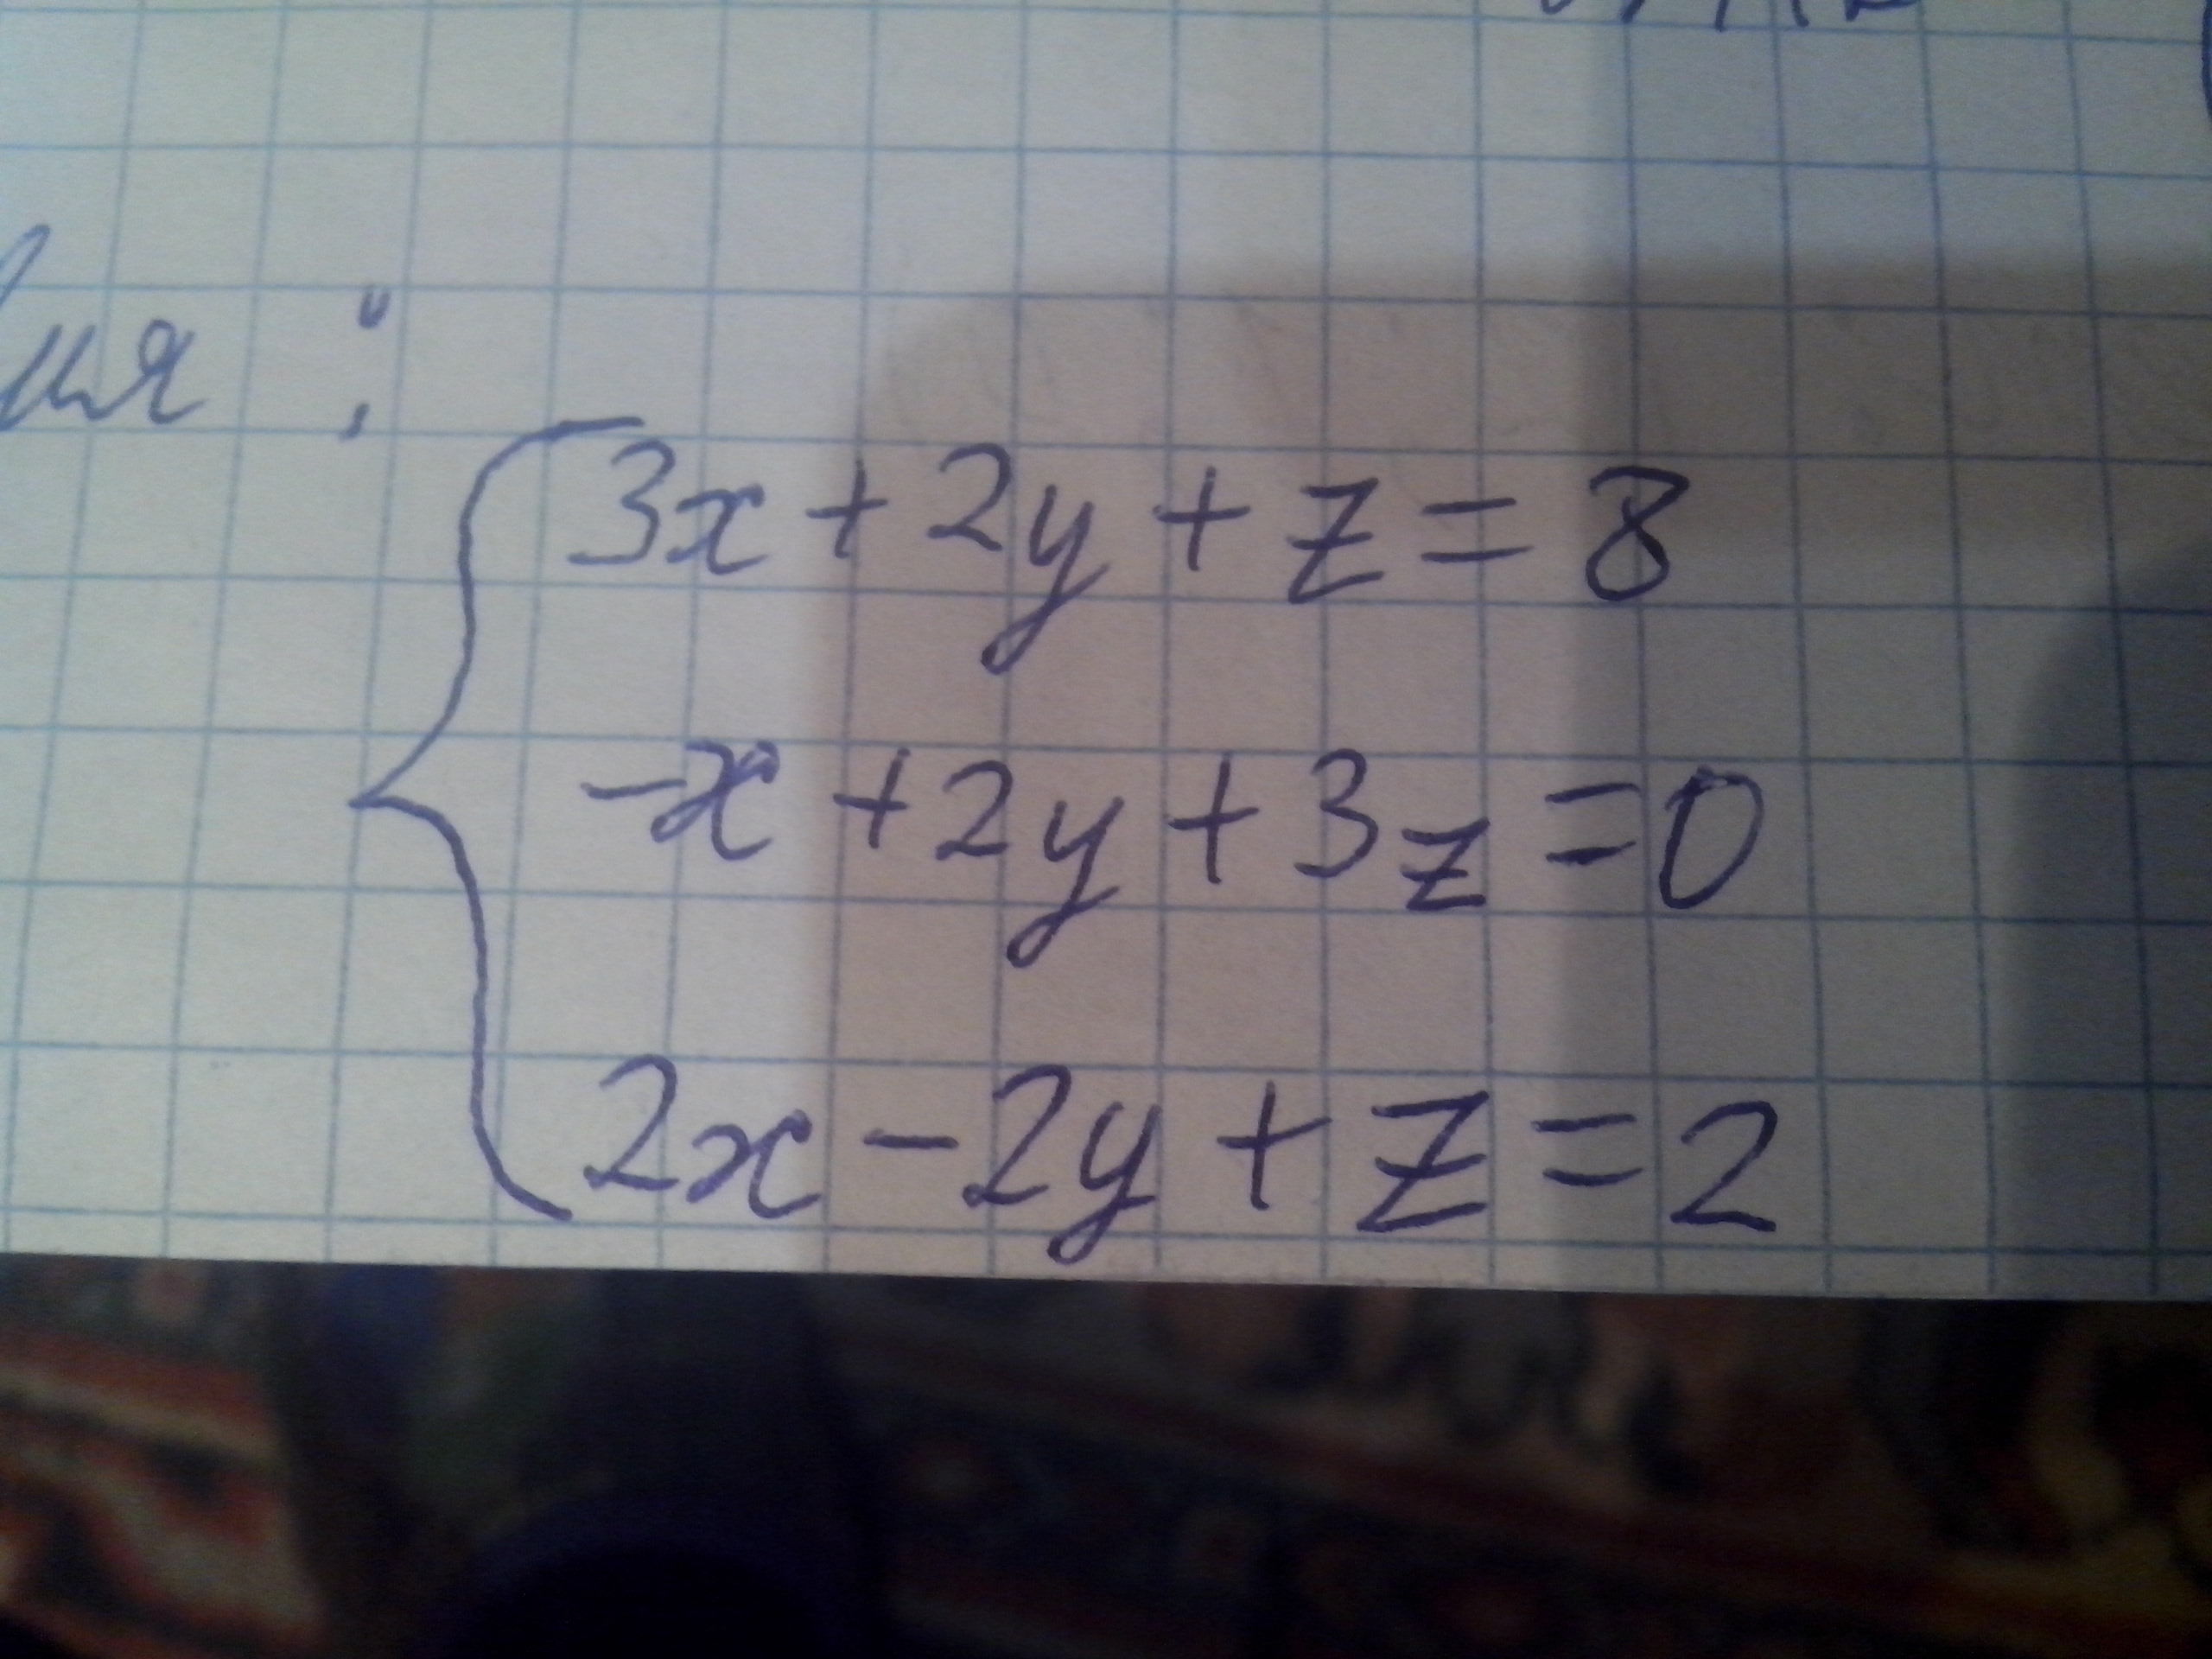 3x + 2y + z = 8
-x + 2y + 3z = 0
2x - 2y + z = 2